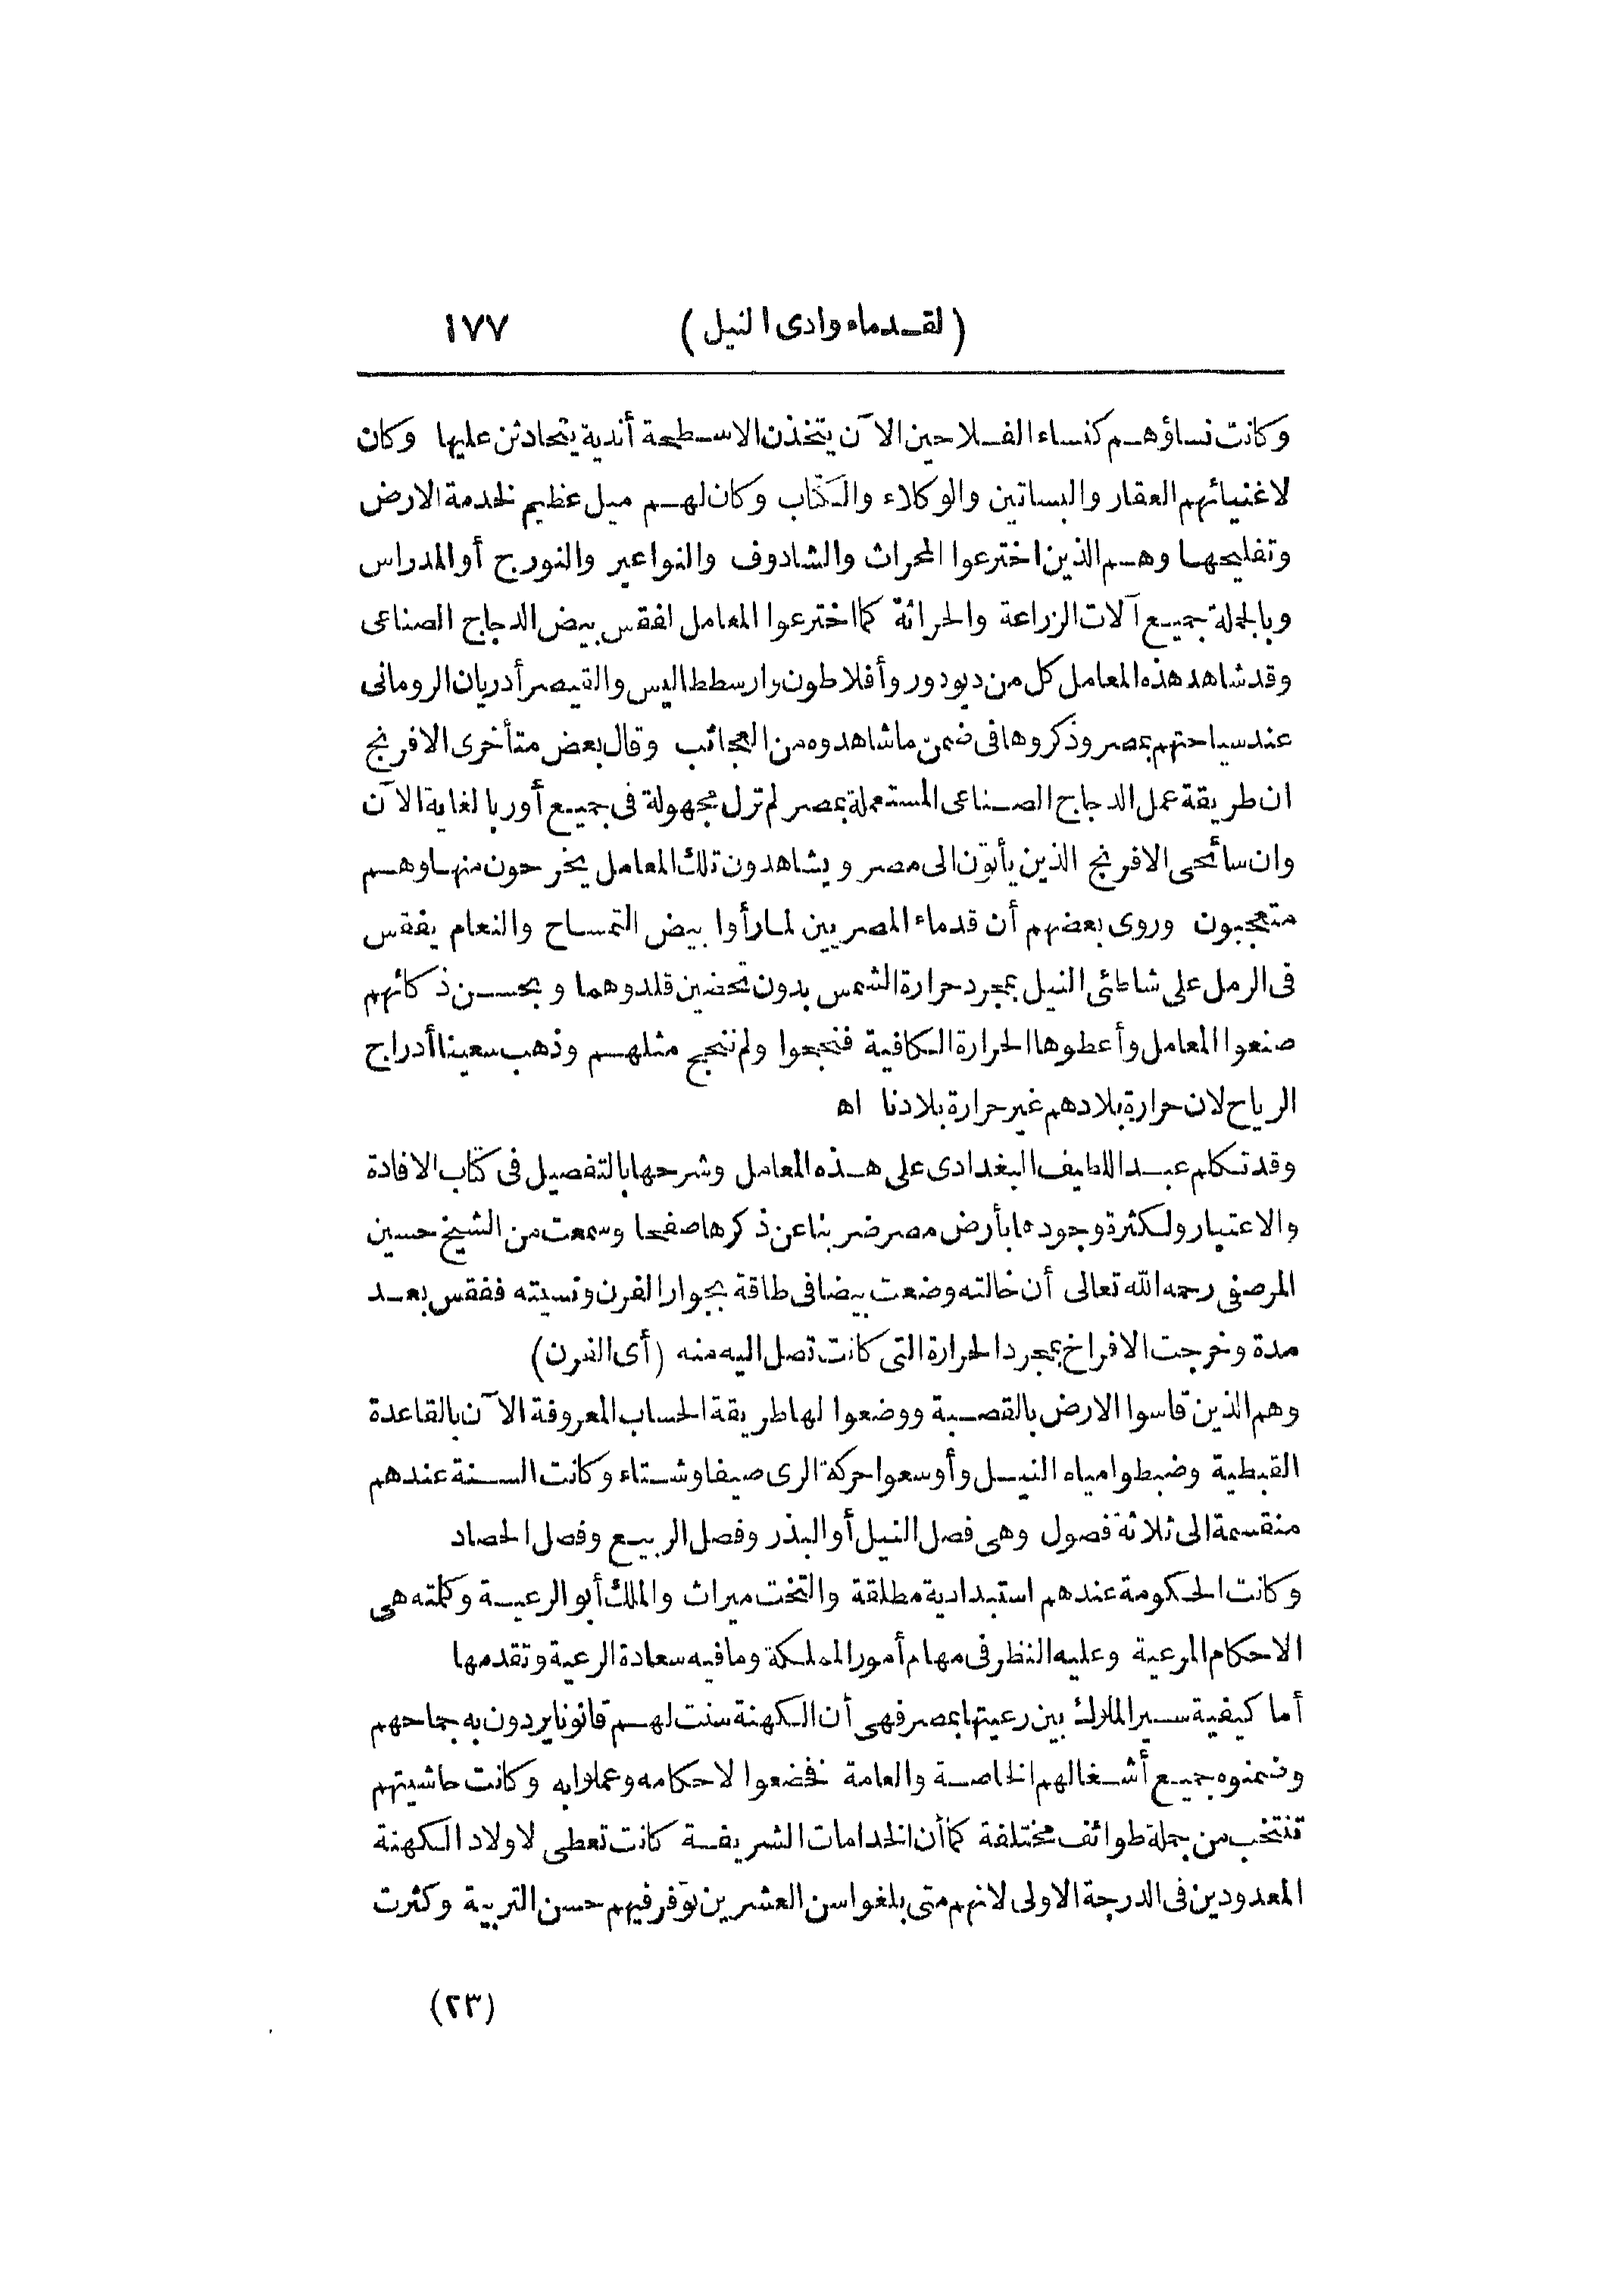 (لقدماء وادى النيل) ١٧٧
وكانت نساؤهم كنساء الفلاحين الآن يتخذن الاسطحة أندية يتحادثن عليها وكان
لاغنيائهم العقار والبساتين والوكلاء والكتّاب وكان لهم ميل عظيم لخدمة الارض
وتفليحها وهم الذين اخترعوا المحراث والشادوف والنواعير والنورج أو المدراس
وبالجملة جميع آلات الزراعة والحراثة كما اخترعوا المعامل لفقس بيض الدجاج الصناعى
وقد شاهد هذه المعامل كل من ديودور وأفلاطون وارسططاليس والقيصر أدريان الرومانى
عند سياحتهم بمصر وذكروها فى ضمن ما شاهدوه من العجائب وقال بعض متأخرى الافرنج
ان طريقة عمل الدجاج الصناعى المستعملة بمصر لم تزل مجهولة فى جميع أوربا لغاية الآن
وان سائحى الافرنج الذين يأتون الى مصر ويشاهدون تلك المعامل يخرجون منها وهم
متعجبون وروى بعضهم أن قدماء المصريين لما رأوا بيض التمساح والنعام يفقس
فى الرمل على شاطئ النيل بمجرد حرارة الشمس بدون تحضين قلدوهما وبحسن ذكائهم
صنعوا المعامل وأعطوها الحرارة الكافية فنجحوا ولم ننجح مثلهم وذهب سعينا أدراج
الرياح لان حرارة بلادهم غير حرارة بلادنا اه
وقد تكلم عبد اللطيف البغدادى على هذه المعامل وشرحها بالتفصيل فى كتاب الافادة
والاعتبار ولكثرة وجودها بأرض مصر ضربنا عن ذكرها صفحا وسمعت من الشيخ حسين
المرصفى رحمه الله تعالى أن خالته وضعت بيضا فى طاقة بجوار الفرن ونسيته ففقس بعد
مدة وخرجت الافراخ بمجرد الحرارة التى كانت تصل اليه منه (أى الفرن)
وهم الذين قاسوا الارض بالقصبة ووضعوا لها طريقة الحساب المعروفة الآن بالقاعدة
القبطية وضبطوا مياه النيل وأوسعوا حركة الرى صيفا وشتاء وكانت السنة عندهم
منقسمة الى ثلاثة فصول وهى فصل النيل أو البذر وفصل الربيع وفصل الحصاد
وكانت الحكومة عندهم استبدادية مطلقة والتخت ميراث والملك أبو الرعية وكلمته هى
الاحكام المرعية وعليه النظر فى مهام أمور المملكة وما فيه سعادة الرعية وتقدمها
أما كيفية سير الملوك بين رعيتها بمصر فهى أن الكهنة سنت لهم قانونا يردون به جماحهم
وضمنوه جميع أشغالهم الخاصة والعامة فخضعوا لاحكامه وعملوا به وكانت حاشيتهم
تنتخب من جملة طوائف مختلفة كما أن الخدامات الشريفة كانت تعطى لاولاد الكهنة
المعدودين فى الدرجة الاولى لانهم متى بلغوا سن العشرين توفر فيهم حسن التربية وكثرت
(٢٣)